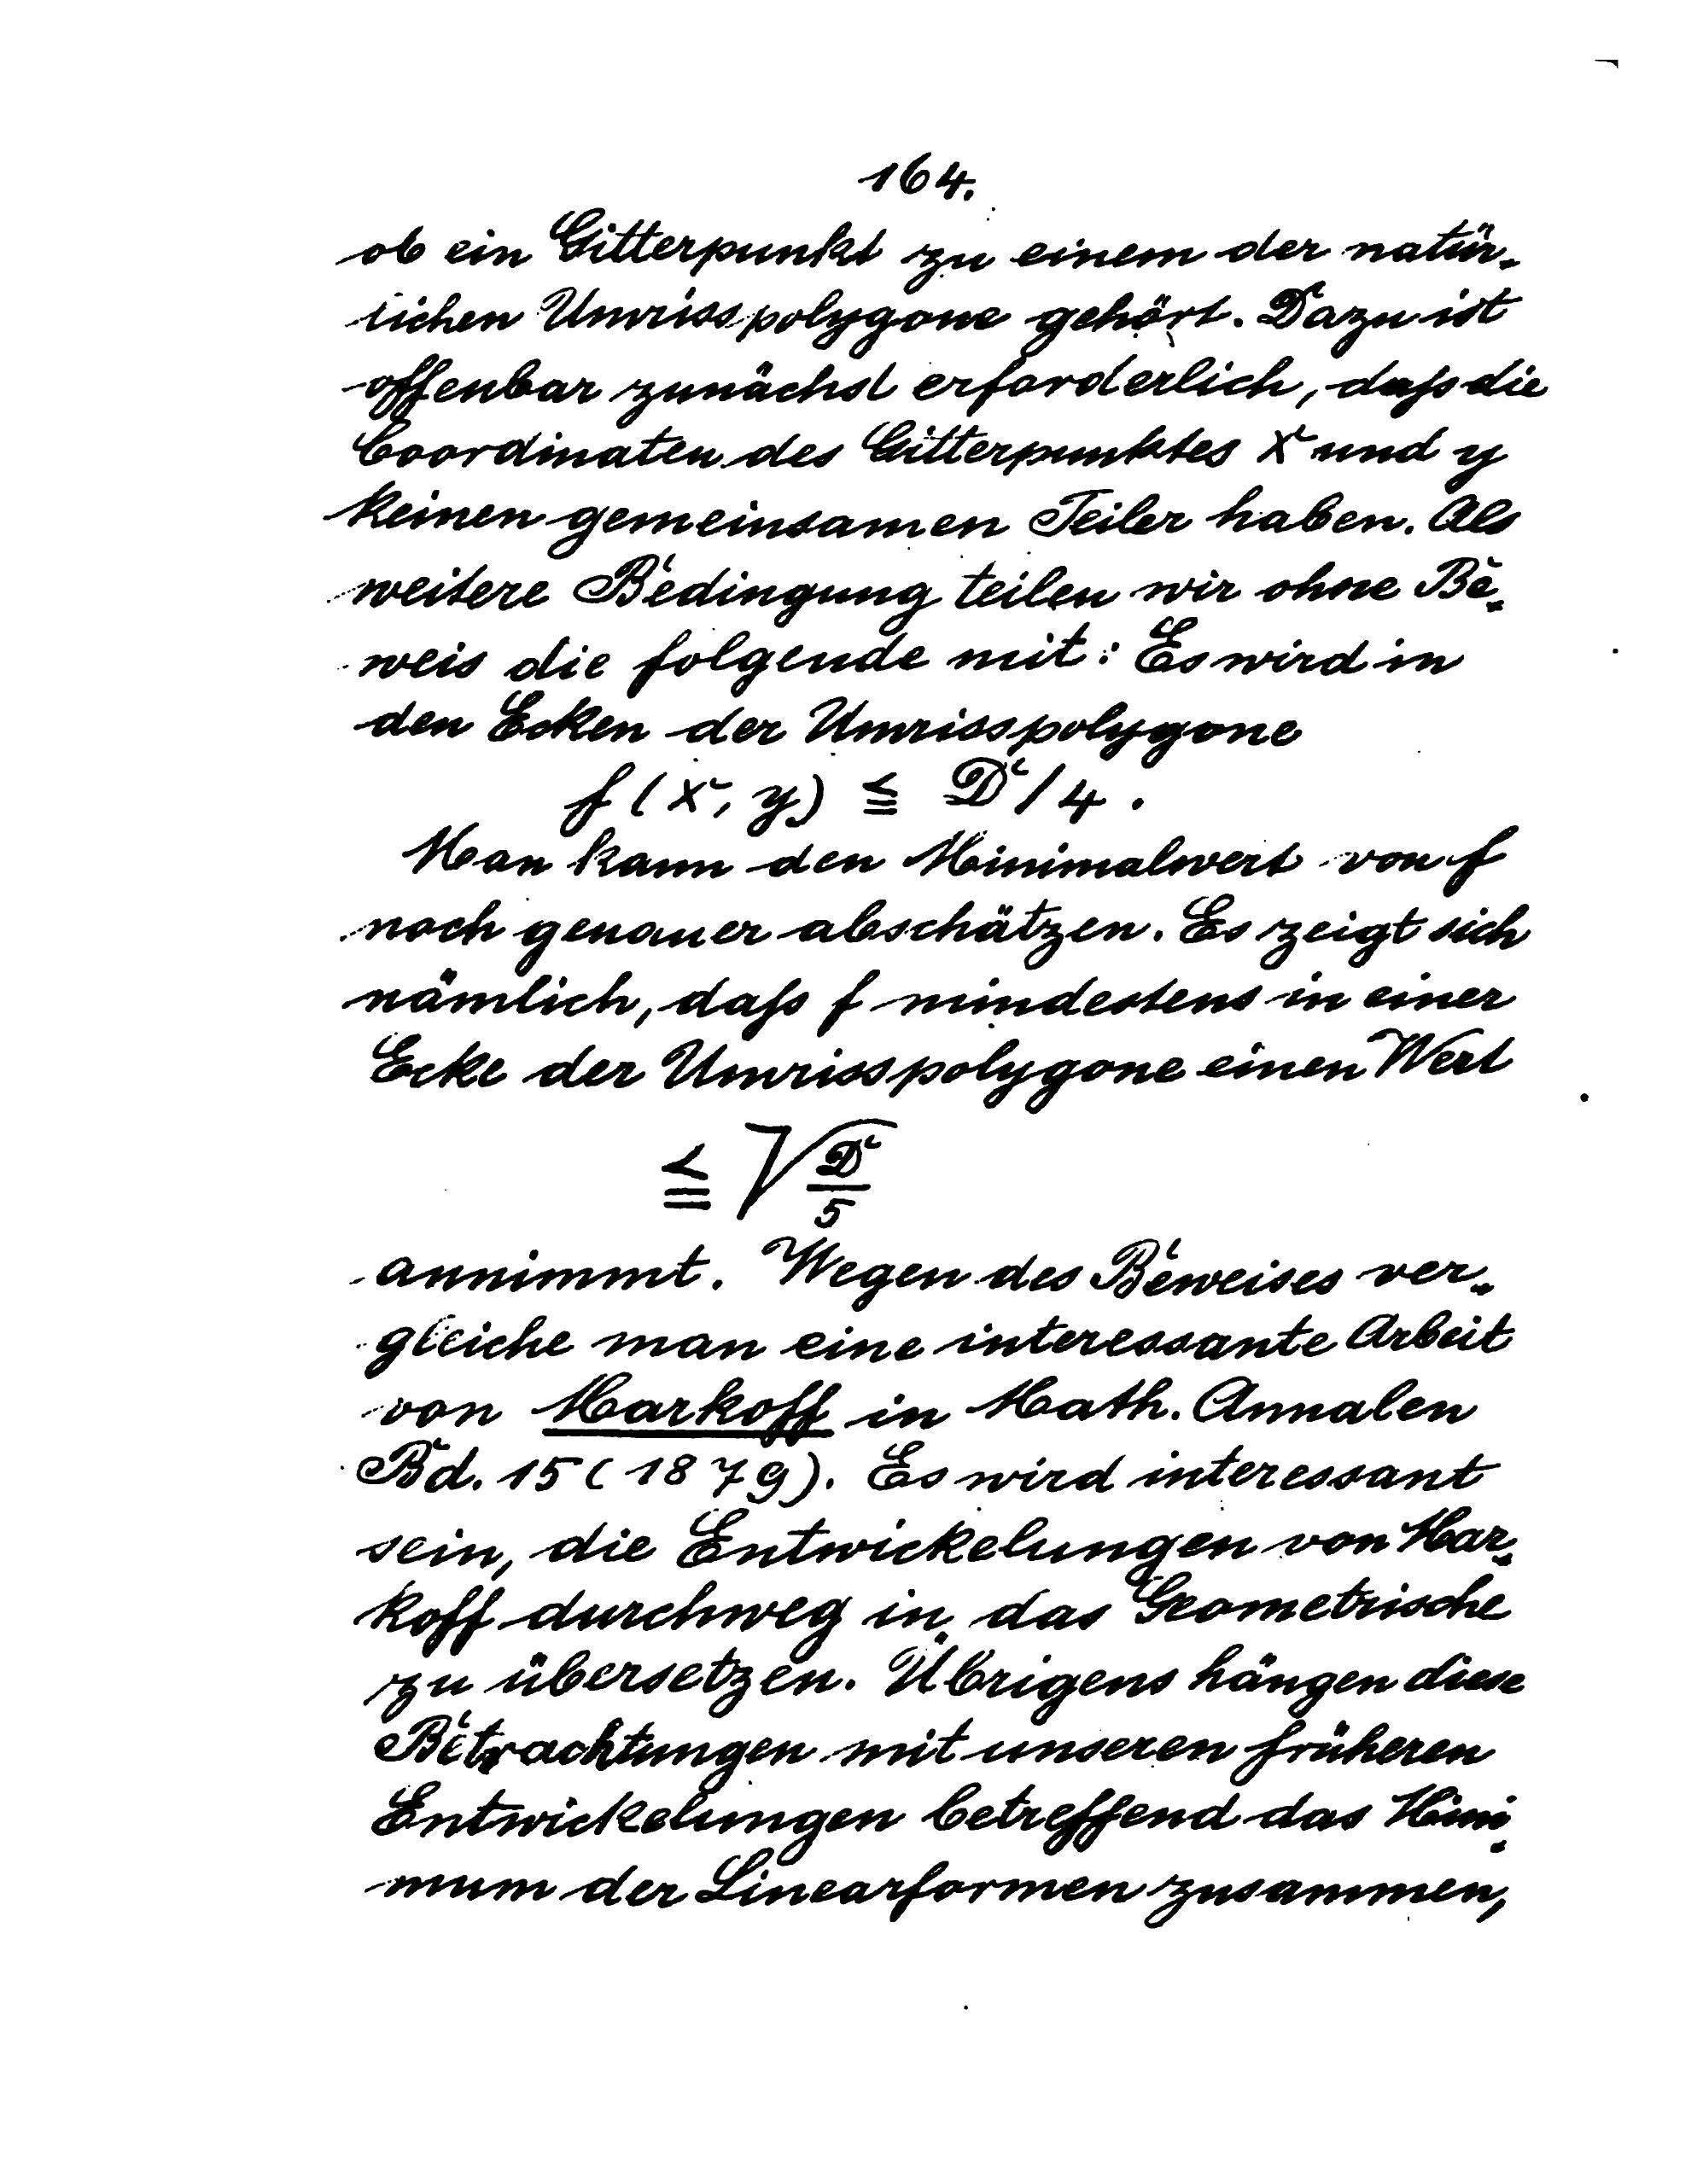 164.
ob ein Gitterpunkt zu einem der natür-
lichen Umrisspolygone gehört. Dazu ist
offenbar zunächst erforderlich, daß die
Coordinaten des Gitterpunktes x und y
keinen gemeinsamen Teiler haben. Als
weitere Bedingung teilen wir ohne Be-
weis die folgende mit: Es wird in
den Ecken der Umrisspolygone
f(x, y) ≦ D/4.
Man kann den Minimalwert von f
noch genauer abschätzen. Es zeigt sich
nämlich, daß f mindestens in einer
Ecke der Umrisspolygone einen Wert
≦ √(D/5)
annimmt. Wegen des Beweises ver-
gleiche man eine interessante Arbeit
von Markoff in Math. Annalen
Bd. 15 (1879). Es wird interessant
sein, die Entwickelungen von Mar-
koff durchweg in das Geometrische
zu übersetzen. Übrigens hängen diese
Betrachtungen mit unseren früheren
Entwickelungen betreffend das Mini-
mum der Linearformen zusammen,